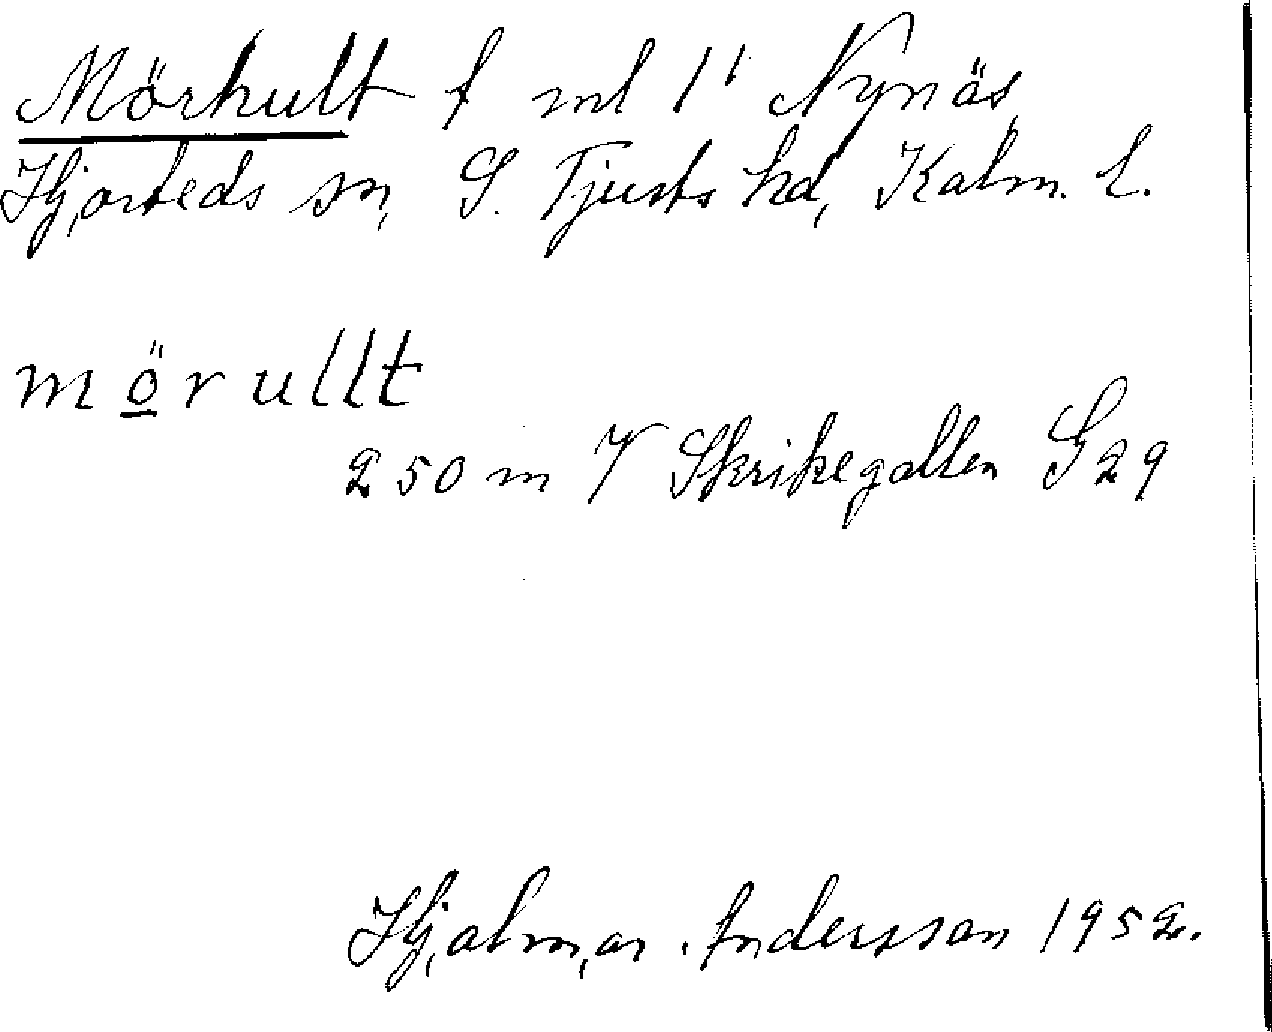 Mörhult f ml 1¹ Nynäs,
Hjorteds sn, S. Tjusts hd, Kalm. l.
mörullt
250 m V Skrikegallen G29
Hjalmar Andersson 1952.